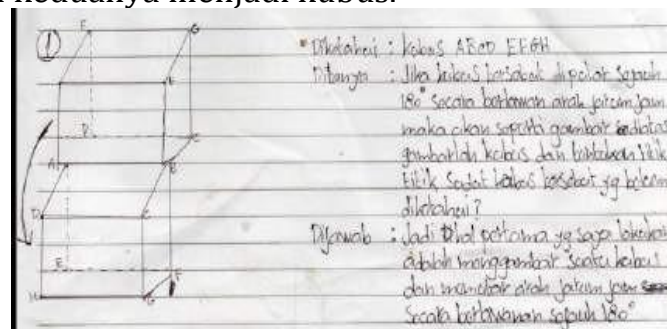 keduanya menjadi kubus.
①
F
G
E
D
C
A
B
D
C
E
F
H
G
• Diketahui : kubus ABCD EFGH
Ditanya : Jika kubus tersebut diputar sejauh
180° secara berlawan arah jarum jam
maka akan seperti gambar
gambarlah kubus dan tentukan titik
titik sudut kubus tersebut yg belum
diketahui?
Dijawab : Jadi hal pertama yg saya lakukan
adalah menggambar suatu kubus
dan memutar arah jarum jam
secara berlawanan sejauh 180°